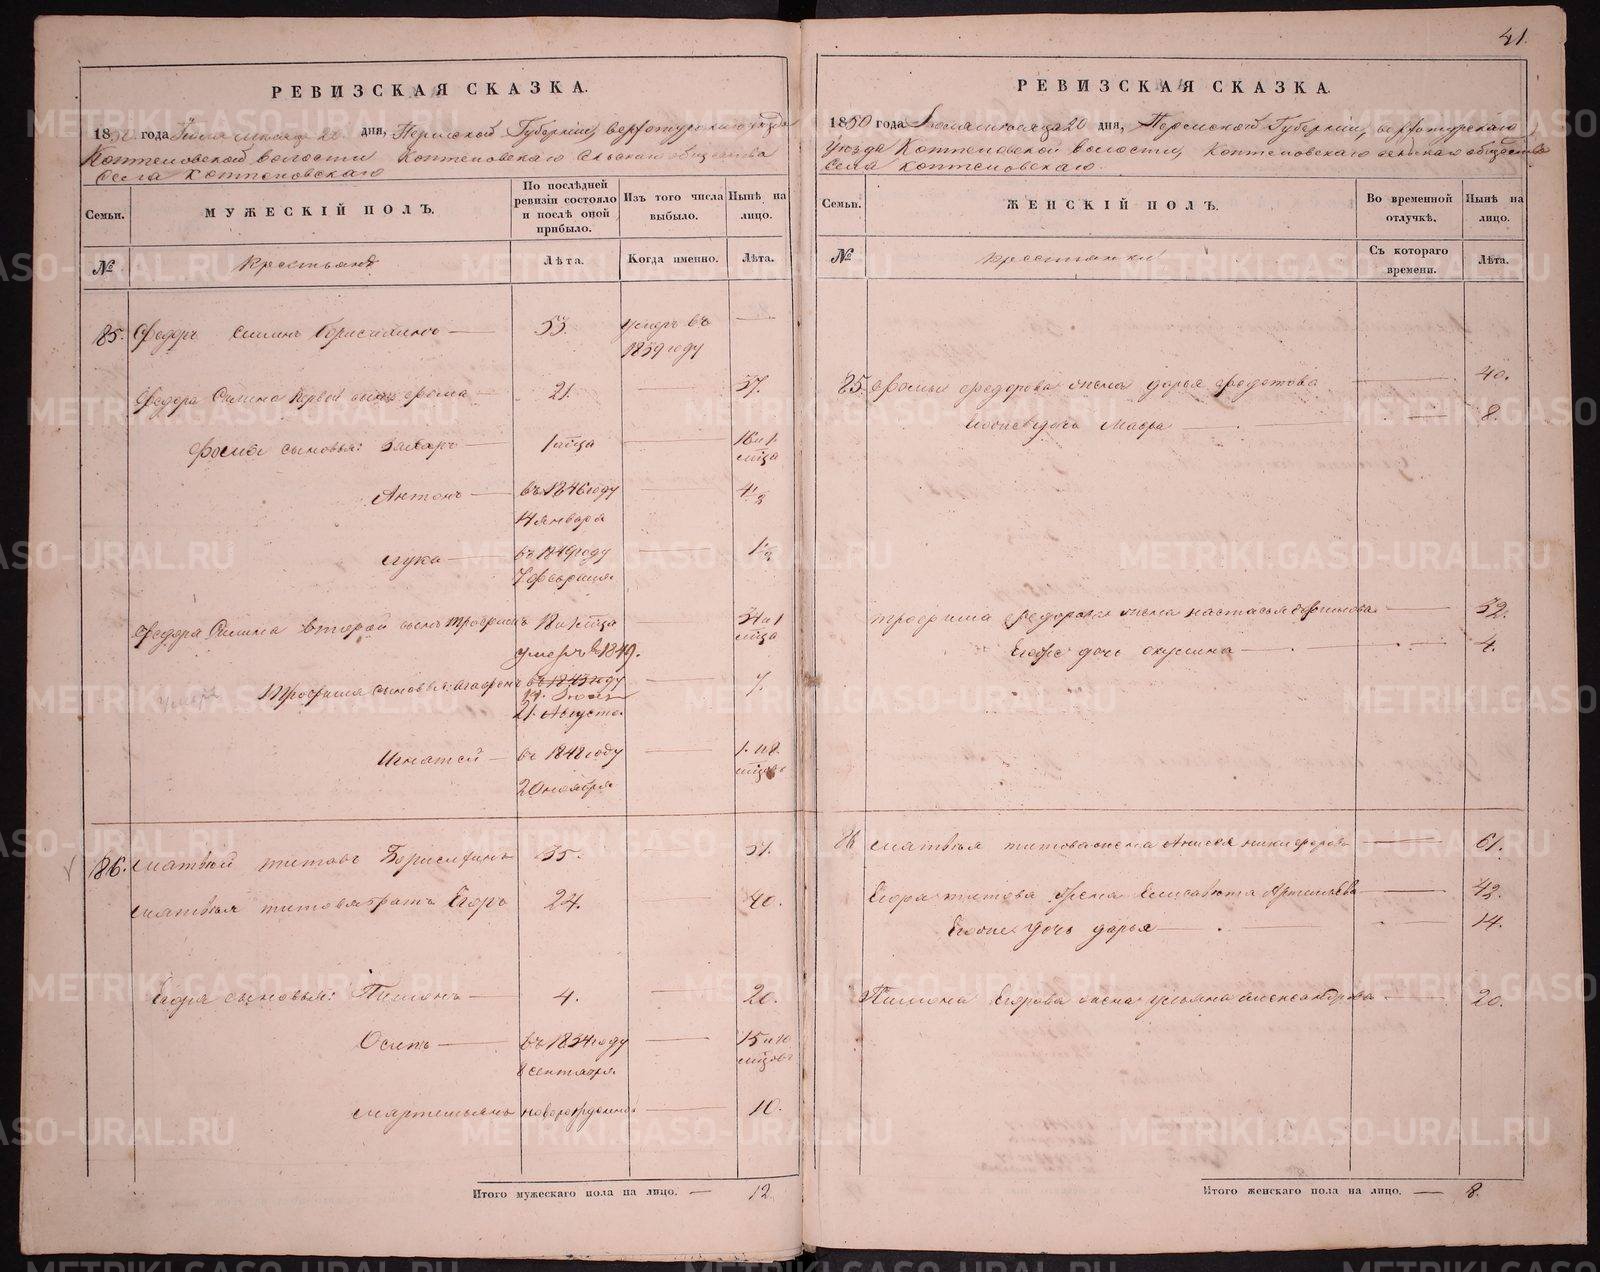 41.
РЕВИЗСКАЯ СКАЗКА.
1850 года Іюля мѣсяца 20 дня, Пермской Губерніи, Верхотурскаго уѣзда
Коптеловской волости Коптеловскаго сельскаго общества
Села Коптеловскаго
Семьи.
МУЖЕСКІЙ ПОЛЪ.
По послѣдней ревизіи состояло и послѣ оной прибыло.
Изъ того числа выбыло.
Нынѣ на лицо.
№
Крестьянъ
Лѣта.
Когда именно.
Лѣта.
85. Ѳедоръ Силинъ Борисихинъ — 53. умеръ въ —
1839 году
Ѳедора Силина первой сынъ Ѳома — 21. — 37.
Ѳомы сыновья: Захаръ — 1 мѣца — 16 и 1
мѣца
Антонъ — въ 1846 году — 4 1/2
14 января
Лука — въ 1849 году — 1 1/2
7 февраля
Ѳедора Силина второй сынъ Трофимъ 18 и 1 мѣца — 34 и 1
мѣца
умеръ въ 1849.
Трофима сыновья: Агафонъ въ 1843 году — 7.
21. Августа
Игнатей — въ 1848 году — 1. и 8.
мѣцовъ
20 ноября
86. Матвѣй Титовъ Борисихинъ 35. — 51.
Матвѣя Титова братъ Егоръ 24. — 40.
Егора сыновья: Пименъ — 4. — 20.
Осипъ — въ 1834 году — 15 и 10
8 сентября мѣцовъ
Мартемьянъ новорожденной — 10.
Итого мужескаго пола на лицо. — 12.
РЕВИЗСКАЯ СКАЗКА.
1850 года Іюля мѣсяца 20 дня, Пермской Губерніи, Верхотурскаго
уѣзда Коптеловской волости, Коптеловскаго сельскаго общества
Села Коптеловскаго.
Семьи.
ЖЕНСКІЙ ПОЛЪ.
Во временной отлучкѣ.
Нынѣ на лицо.
№
Крестьянки
Съ котораго времени.
Лѣта.
85. Ѳомы Ѳедорова жена Дарья Ѳедотова — 40.
дочь Мавра — 8.
Трофима Ѳедорова жена Настасья — 32.
Его же дочь Окулина — 4.
86 Матвѣя Титова жена Анисья Никифорова — 61.
Егора Титова жена Елисавета Артемьева — 42.
дочь Дарья — 14.
Пимена Егорова жена Ульяна Александрова — 20.
Итого женскаго пола на лицо. — 8.
METRIKI.GASO-URAL.RU